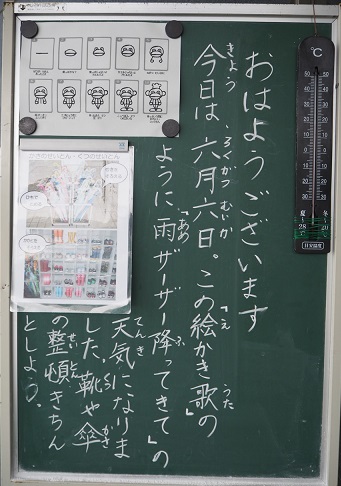 おはようございます
きょう ろくがつ むいか え うた
今日は、六月六日。この絵かき歌の
あめ ふ
ように、「雨ザーザー降ってきて」の
てんき
天気になりま
かさ
した。靴や傘
せいとん
の整頓きちん
としよう。
かさのせいとん・くつのせいとん
℃
50 50
40 40
30 30
20 20
10 10
0 0
10 10
20 20
30 30
夏 冬